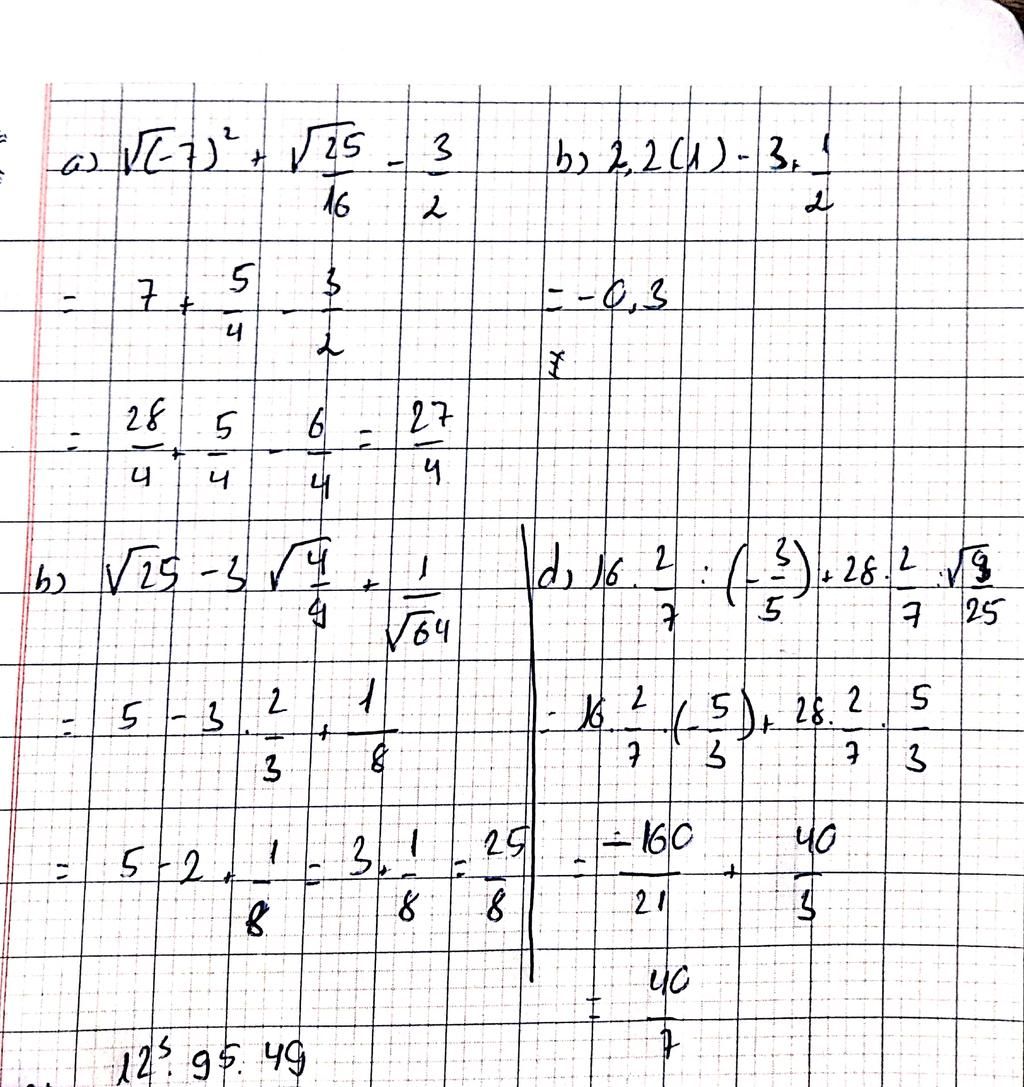 a) √(-7)² + √25/16 - 3/2
= 7 + 5/4 - 3/2
= 28/4 + 5/4 - 6/4 = 27/4
b) 2,2(1) - 3 . 1/2
= -0,3
b) √25 - 3 √4/9 + 1/√64
= 5 - 3 . 2/3 + 1/8
= 5 - 2 + 1/8 = 3 + 1/8 = 25/8
d) 16 . 2/7 : (-3/5) + 28 . 2/7 : √9/25
= 16 . 2/7 . (-5/3) + 28 . 2/7 . 5/3
= -160/21 + 40/3
= 40/7
12⁵ . 95 . 49